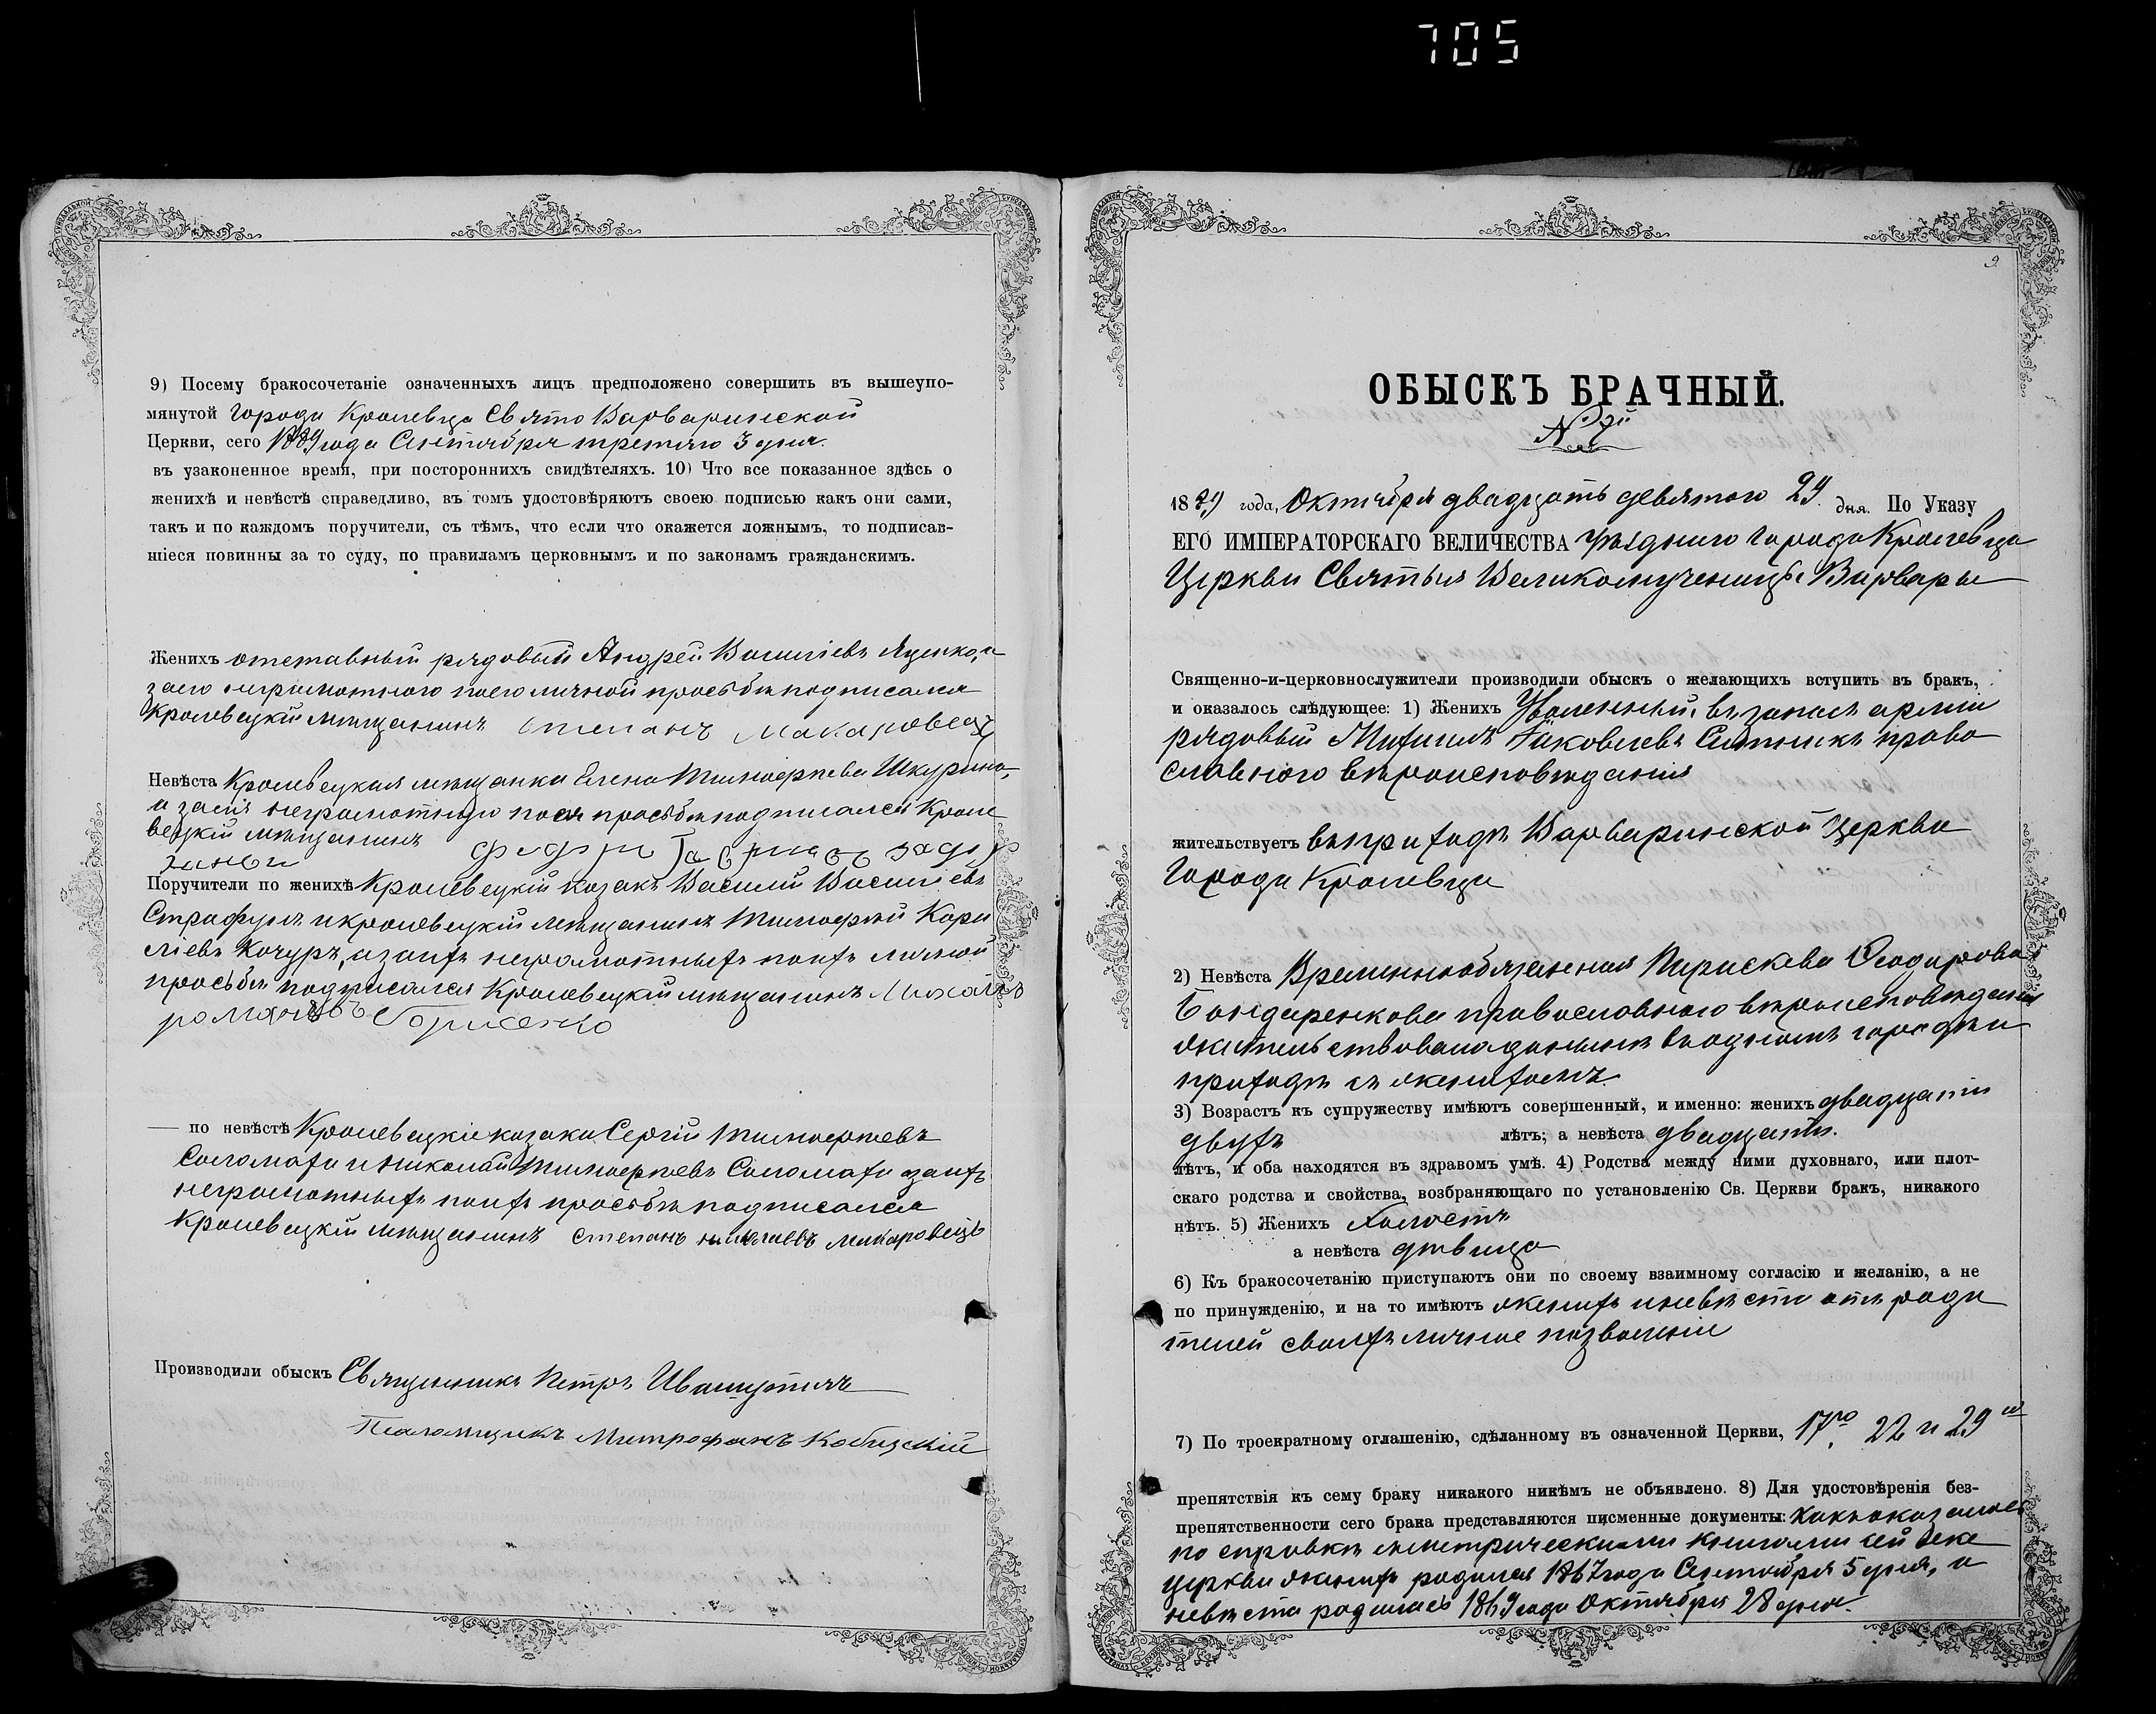 705
9) Посему бракосочетаніе означенныхъ лицъ предположено совершить въ вышеупо-
мянутой города Кролевца Свято Варваринской
Церкви, сего 1889 года Сентября третяго 3 дня.
въ узаконенное время, при постороннихъ свидѣтеляхъ. 10) Что все показанное здѣсь о
женихѣ и невѣстѣ справедливо, въ томъ удостовѣряютъ своею подписью какъ они сами,
такъ и по каждомъ поручители, съ тѣмъ, что если что окажется ложнымъ, то подписав-
шіеся повинны за то суду, по правиламъ церковнымъ и по законамъ гражданскимъ.
Женихъ отставный рядовый Андрей Василіевъ Яценко, а
за его неграмотного по его личной просьбѣ подписался
Кролевецкій мѣщанинъ Степанъ Макаровецъ
Невѣста Кролевецкая мѣщанка Елена Тимофѣева Шкурина,
а за ея неграмотную по ея просьбѣ подписался Кроле
вецкій мѣщанинъ
Поручители по женихѣ Кролевецкій козакъ Василій Василіевъ
Страфунъ и кролевецкій мѣщанинъ Тимофѣй Корн
ліевъ Кочуръ, а за ихъ неграмотныхъ по ихъ личной
просьбѣ подписался Кролевецкій мѣщанинъ Михаилъ
романовъ Борисенко
— по невѣстѣ Кролевецкіе козаки Сергій Тимофѣевъ
Соломаха и Николай Тимофѣевъ Соломаха а за ихъ
неграмотныхъ по ихъ просьбѣ подписался
Кролевецкій мѣщанинъ Степанъ Макаровецъ
Производили обыскъ Священникъ Петръ Ивашутичъ
Псаломщикъ Митрофанъ Кобицскій
9
ОБЫСКЪ БРАЧНЫЙ.
№ 7й
1889 года, Октября двадцать девятого 29 дня. По Указу
ЕГО ИМПЕРАТОРСКАГО ВЕЛИЧЕСТВА Уѣздного Города Кролевца
Церкви Святыя Великомученицы Варвары
Священно-и-церковнослужители производили обыскъ о желающихъ вступить въ бракъ,
и оказалось слѣдующее: 1) Женихъ Уволенный въ запасъ арміи
рядовый Михаилъ Іаковлевъ Ситникъ право
славного вѣроисповѣданія
жительствуетъ въ приходѣ Варваринской Церкви
Города Кролевца
2) Невѣста Временнообязанная Параскева Ѳеодорова
Бондаренкова православного вѣроисповѣданія
жительствовала донынѣ въ одномъ городѣ и
приходѣ съ женихомъ.
3) Возрастъ къ супружеству имѣютъ совершенный, и именно: женихъ двадцати
двухъ лѣтъ; а невѣста двадцати.
лѣтъ, и оба находятся въ здравомъ умѣ. 4) Родства между ними духовнаго, или плот-
скаго родства и свойства, возбраняющаго по установленію Св. Церкви бракъ, никакого
нѣтъ. 5) Женихъ Холостъ
а невѣста дѣвица
6) Къ бракосочетанію приступаютъ они по своему взаимному согласію и желанію, а не
по принужденію, и на то имѣютъ женихъ и невѣста отъ роди
телей своихъ личное позволеніе
7) По троекратному оглашенію, сдѣланному въ означенной Церкви, 17го, 22 и 29го
препятствія къ сему браку никакого никѣмъ не объявлено. 8) Для удостовѣренія без-
препятственности сего брака представляются писменные документы: Какъ оказалось
по справкѣ съ метрическими книгами сей де же
церкви женихъ родился 1867 года Сентября 5 дня, а
невѣста родилась 1869 года Октября 28 дня.